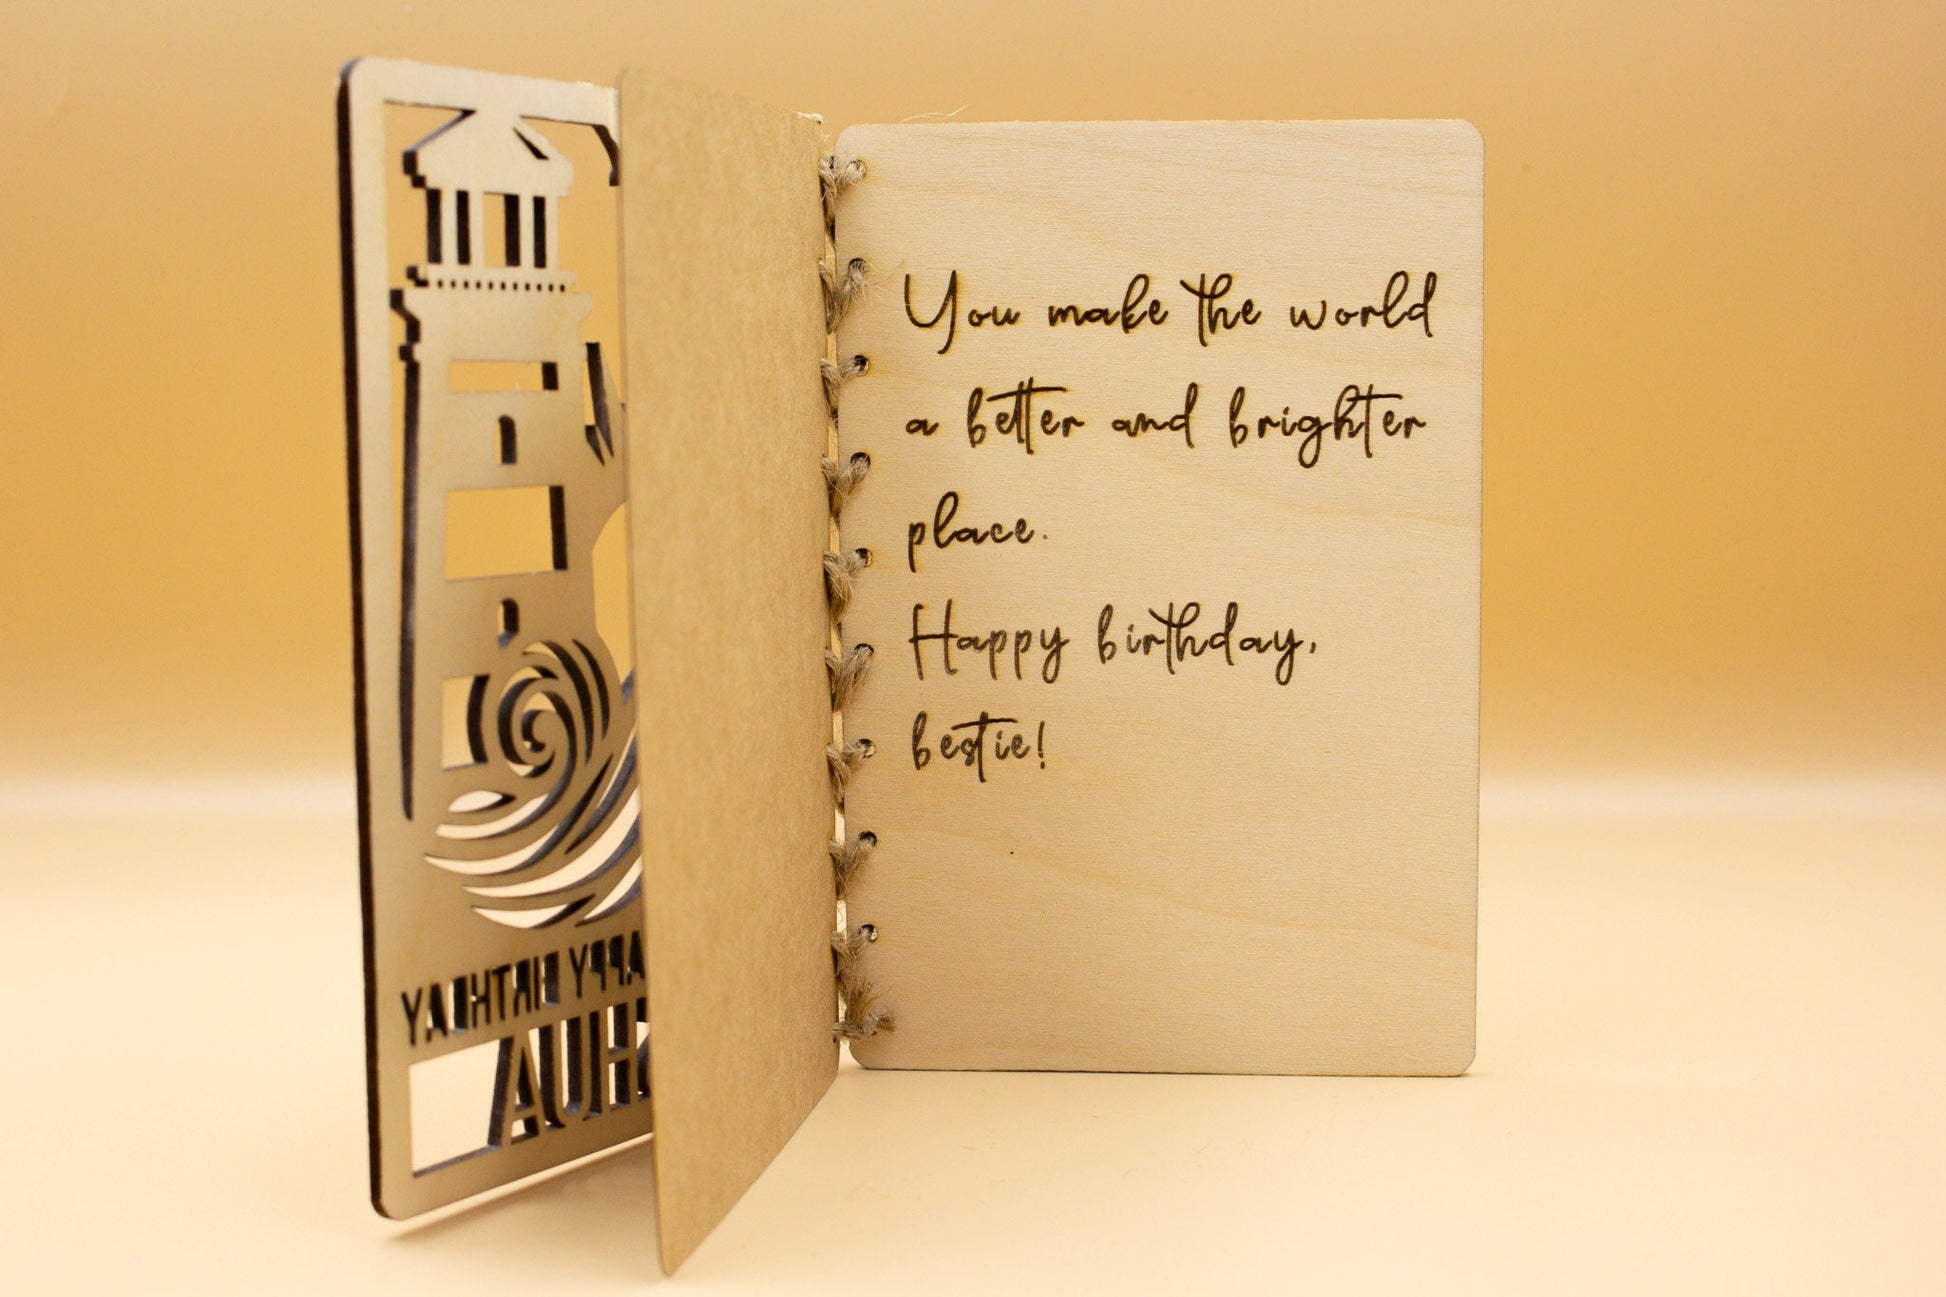 APPY BIRTHDAY
You make the world
a better and brighter
place.
Happy birthday,
bestie!